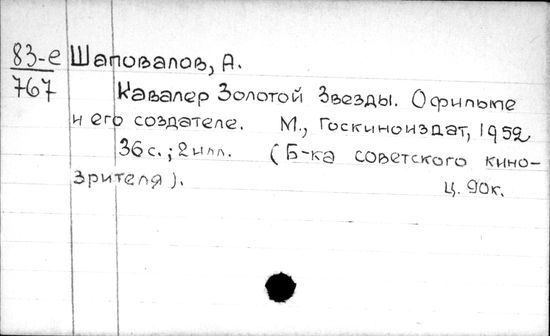 83-е Шаповалов, А.
767
Кавалер Золотой Звезды. О фильме
и его создателе. М., Госкиноиздат, 1952
36 с.; 2 илл. (Б-ка советского кино-
зрителя).
Ц. 90к.